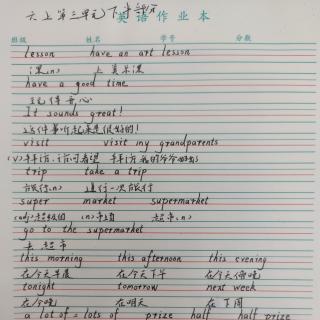 六上第三单元下半部分
英语作业本
班级 姓名 学号 分数
lesson have an art lesson
课(n) 上美术课
have a good time
玩得开心
It sounds great!
这件事听起来是很好的!
visit visit my grandparents
(v)拜访、访问;看望 拜访我的爷爷奶奶
trip take a trip
旅行(n) 进行一次旅行
super market supermarket
(adj)超级的 (n)市场 超市(n)
go to the supermarket
去超市
this morning this afternoon this evening
在今天早晨 在今天下午 在今天傍晚
tonight tomorrow next week
在今晚 在明天 在下周
a lot of = lots of prize half half prize